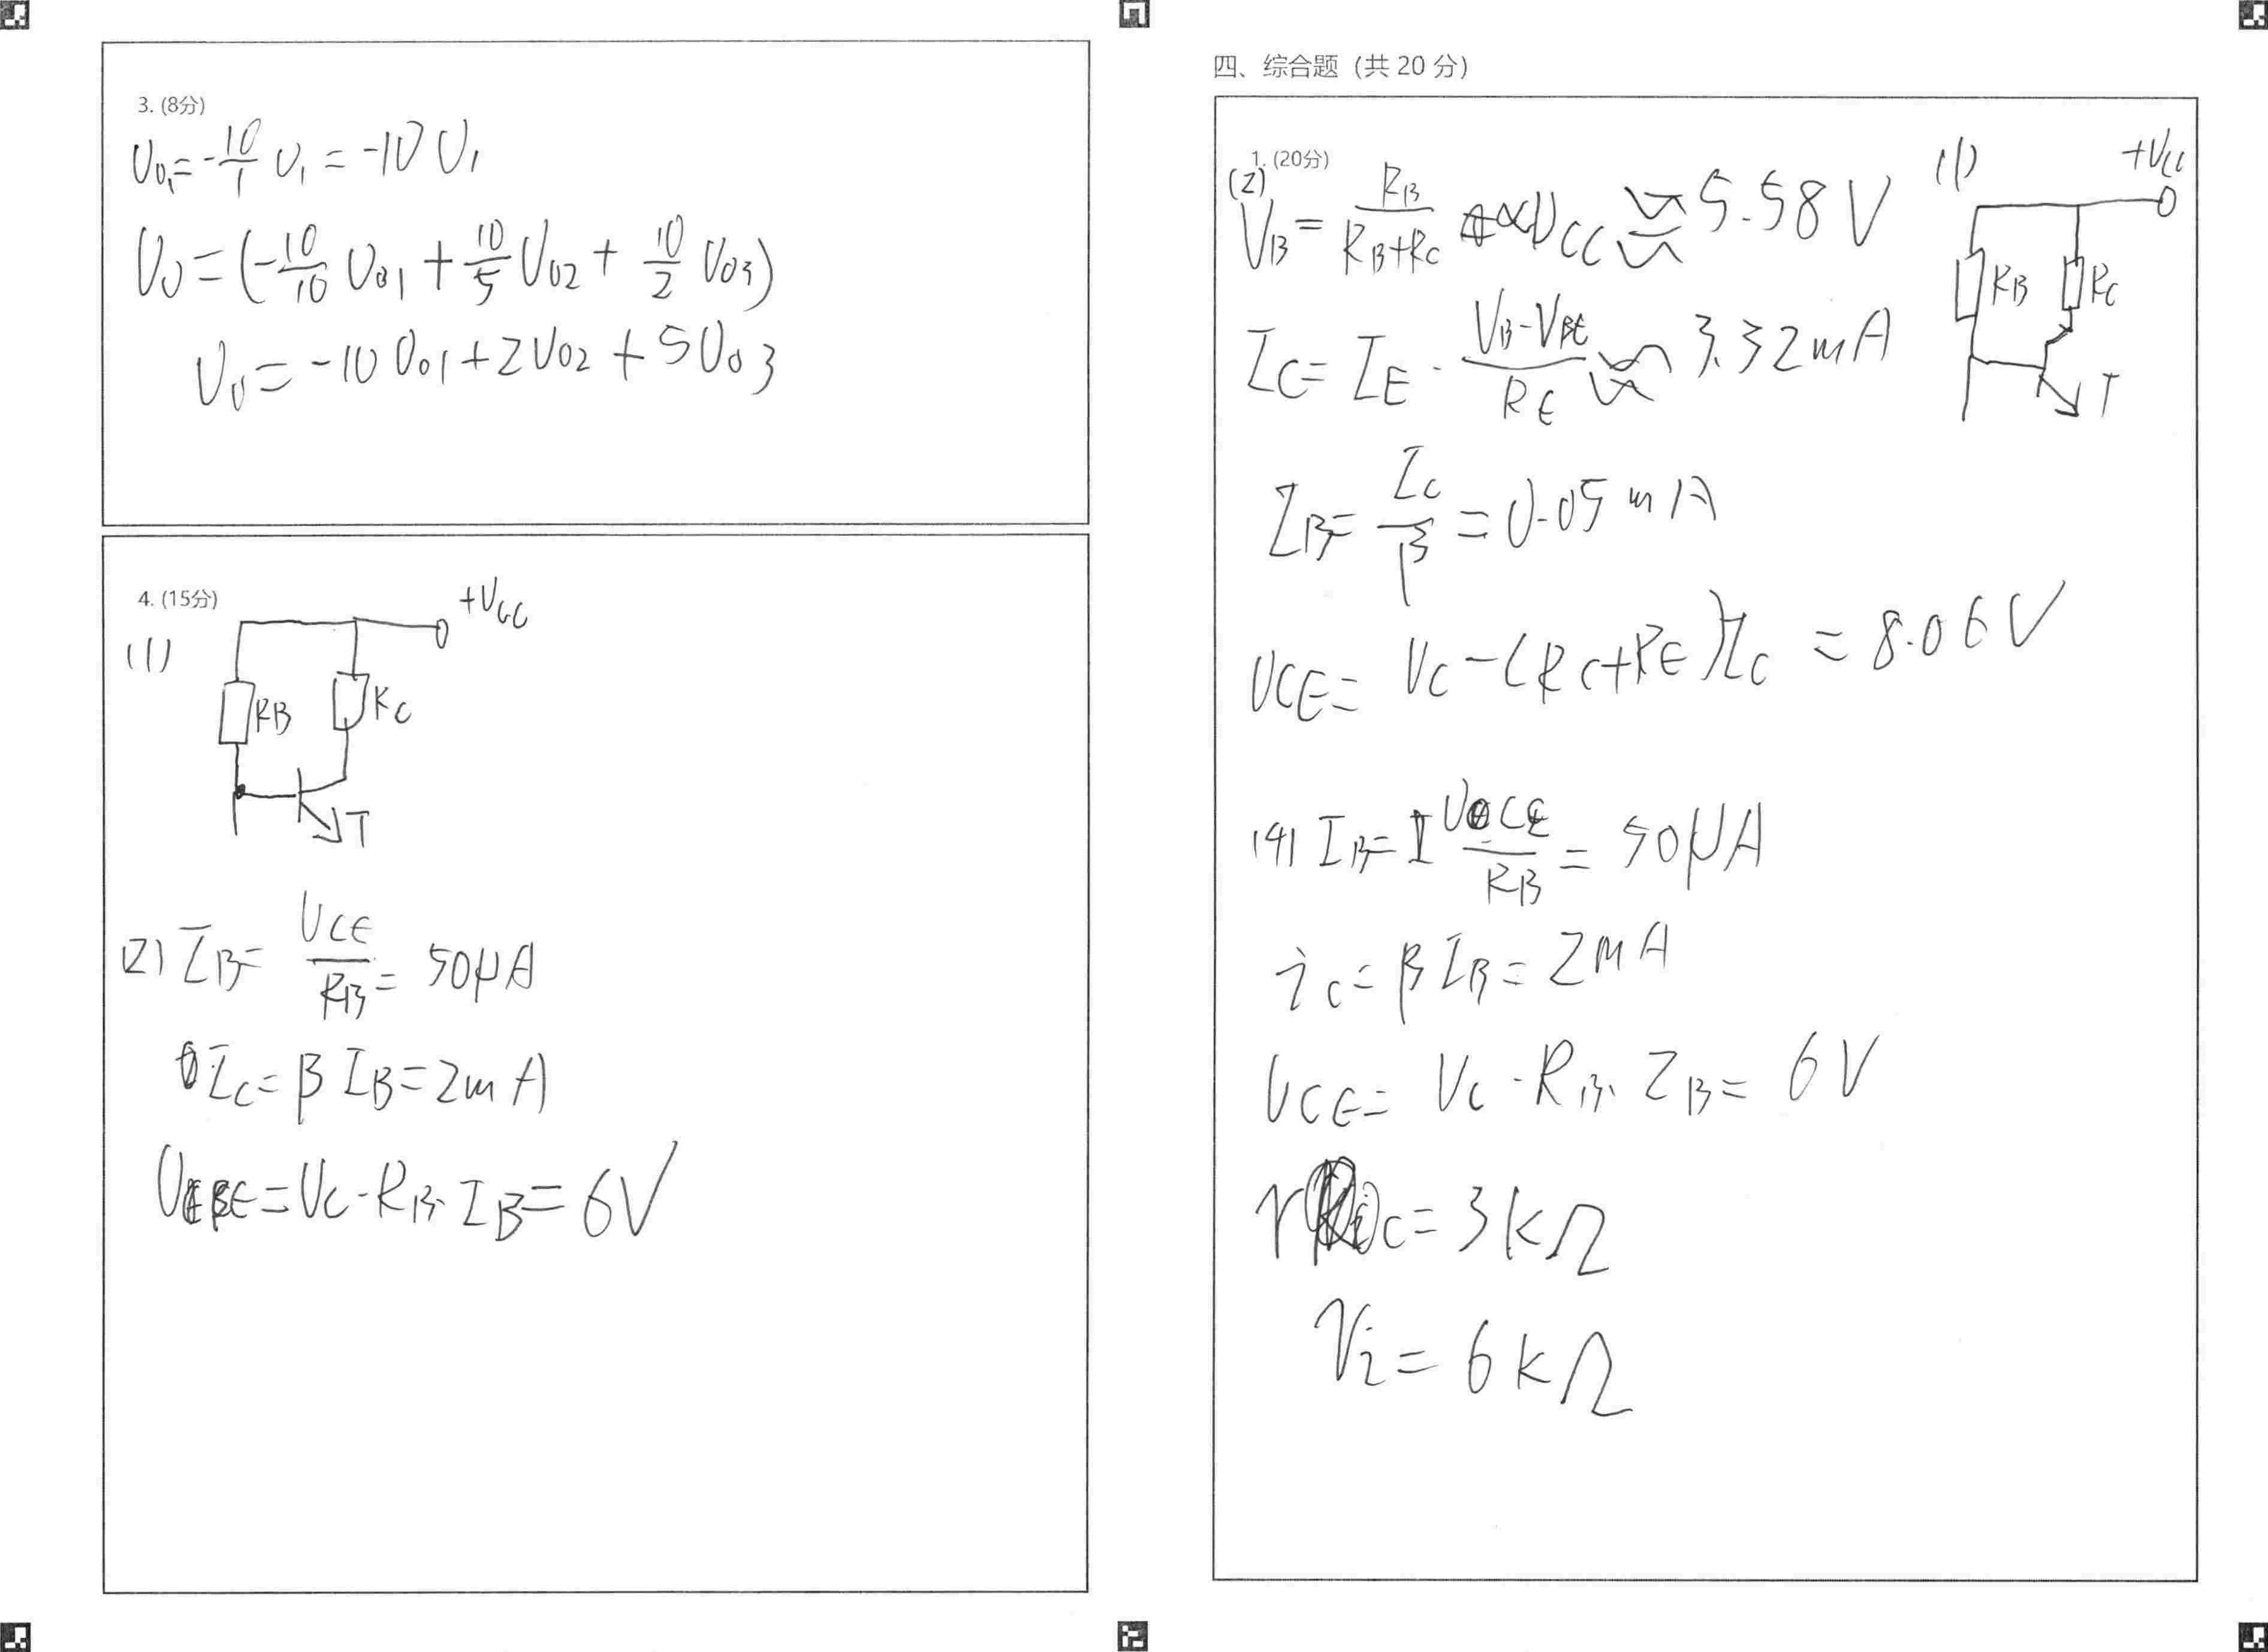 3. (8分)
U₀₁ = -10/1 U₁ = -10 U₁
U₀ = (-10/10 U₀₁ + 10/5 U₀₂ + 10/2 U₀₃)
U₀ = -10 U₀₁ + 2U₀₂ + 5U₀₃
4. (15分)
(1)
+VCC
RB
RC
T
(2) IB = UCE/RB = 50μA
IC = β IB = 2mA
UBE = UC - RB · IB = 6V
四、综合题（共 20 分）
1. (20分)
(1)
+VCC
RB
RC
T
(2)
VB = RB/(RB+RC) × VCC ≈ 5.58V
IC = IE · (VB-VBE)/RE ≈ 3.32mA
IB = IC/β = 0.05mA
UCE = VC - (RC+RE)IC = 8.06V
(4) IB = UCE/RB = 50μA
iC = β IB = 2mA
UCE = VC - RB · IB = 6V
rc = 3kΩ
ri = 6kΩ